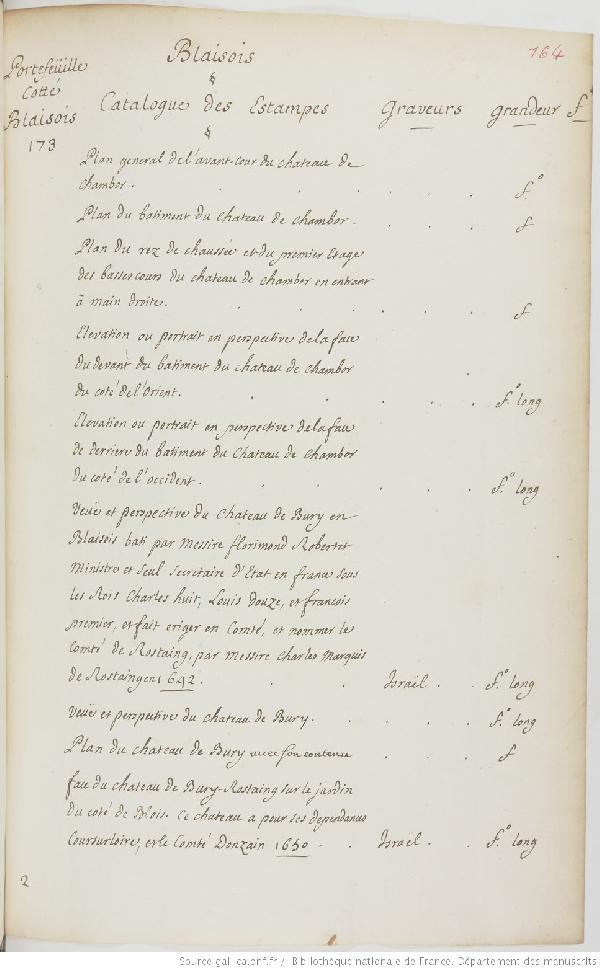 Blaisois
164
Portefeüille
Cotté
Blaisois
173
§
Catalogue des Estampes graveurs grandeur f.
§
Plan general de l'avant-cour du chateau de
chambor. f.º
Plan du batiment du chateau de chambor. f
Plan du rez de chaussée et du premier Etage
des basses cours du chateau de chambor en entrant
à main droite. f
Elevation ou portrait en perspective de la face
du devant du batiment du chateau de chambor
du coté de l'Orient. f.º long
Elevation ou portrait en perspective de la face
de derriere du batiment du Chateau de Chambor
du coté de l'occident. f.º long
Veüe et perspective du Chateau de Bury en
Blaisois bati par Messire florimond Robertet
Ministre et Seul Secretaire d'Etat en france sous
les Rois Charles huit, Louis Douze, et francois
premier, et fait eriger en Comté, et nommer le
Comté de Rostaing, par Messire Charles Marquis
de Rostaing en 1642. Israël. f.º long
Veüe et perspective du chateau de Bury. f.º long
Plan du chateau de Bury avec son contenu f
face du chateau de Bury-Rostaing sur le jardin
du coté de Blois. Ce chateau a pour ses dependances
Coursurloire, et le Comté Donzain 1650. Israël. f.º long
2
Source gallica.bnf.fr / Bibliothèque nationale de France. Département des manuscrits